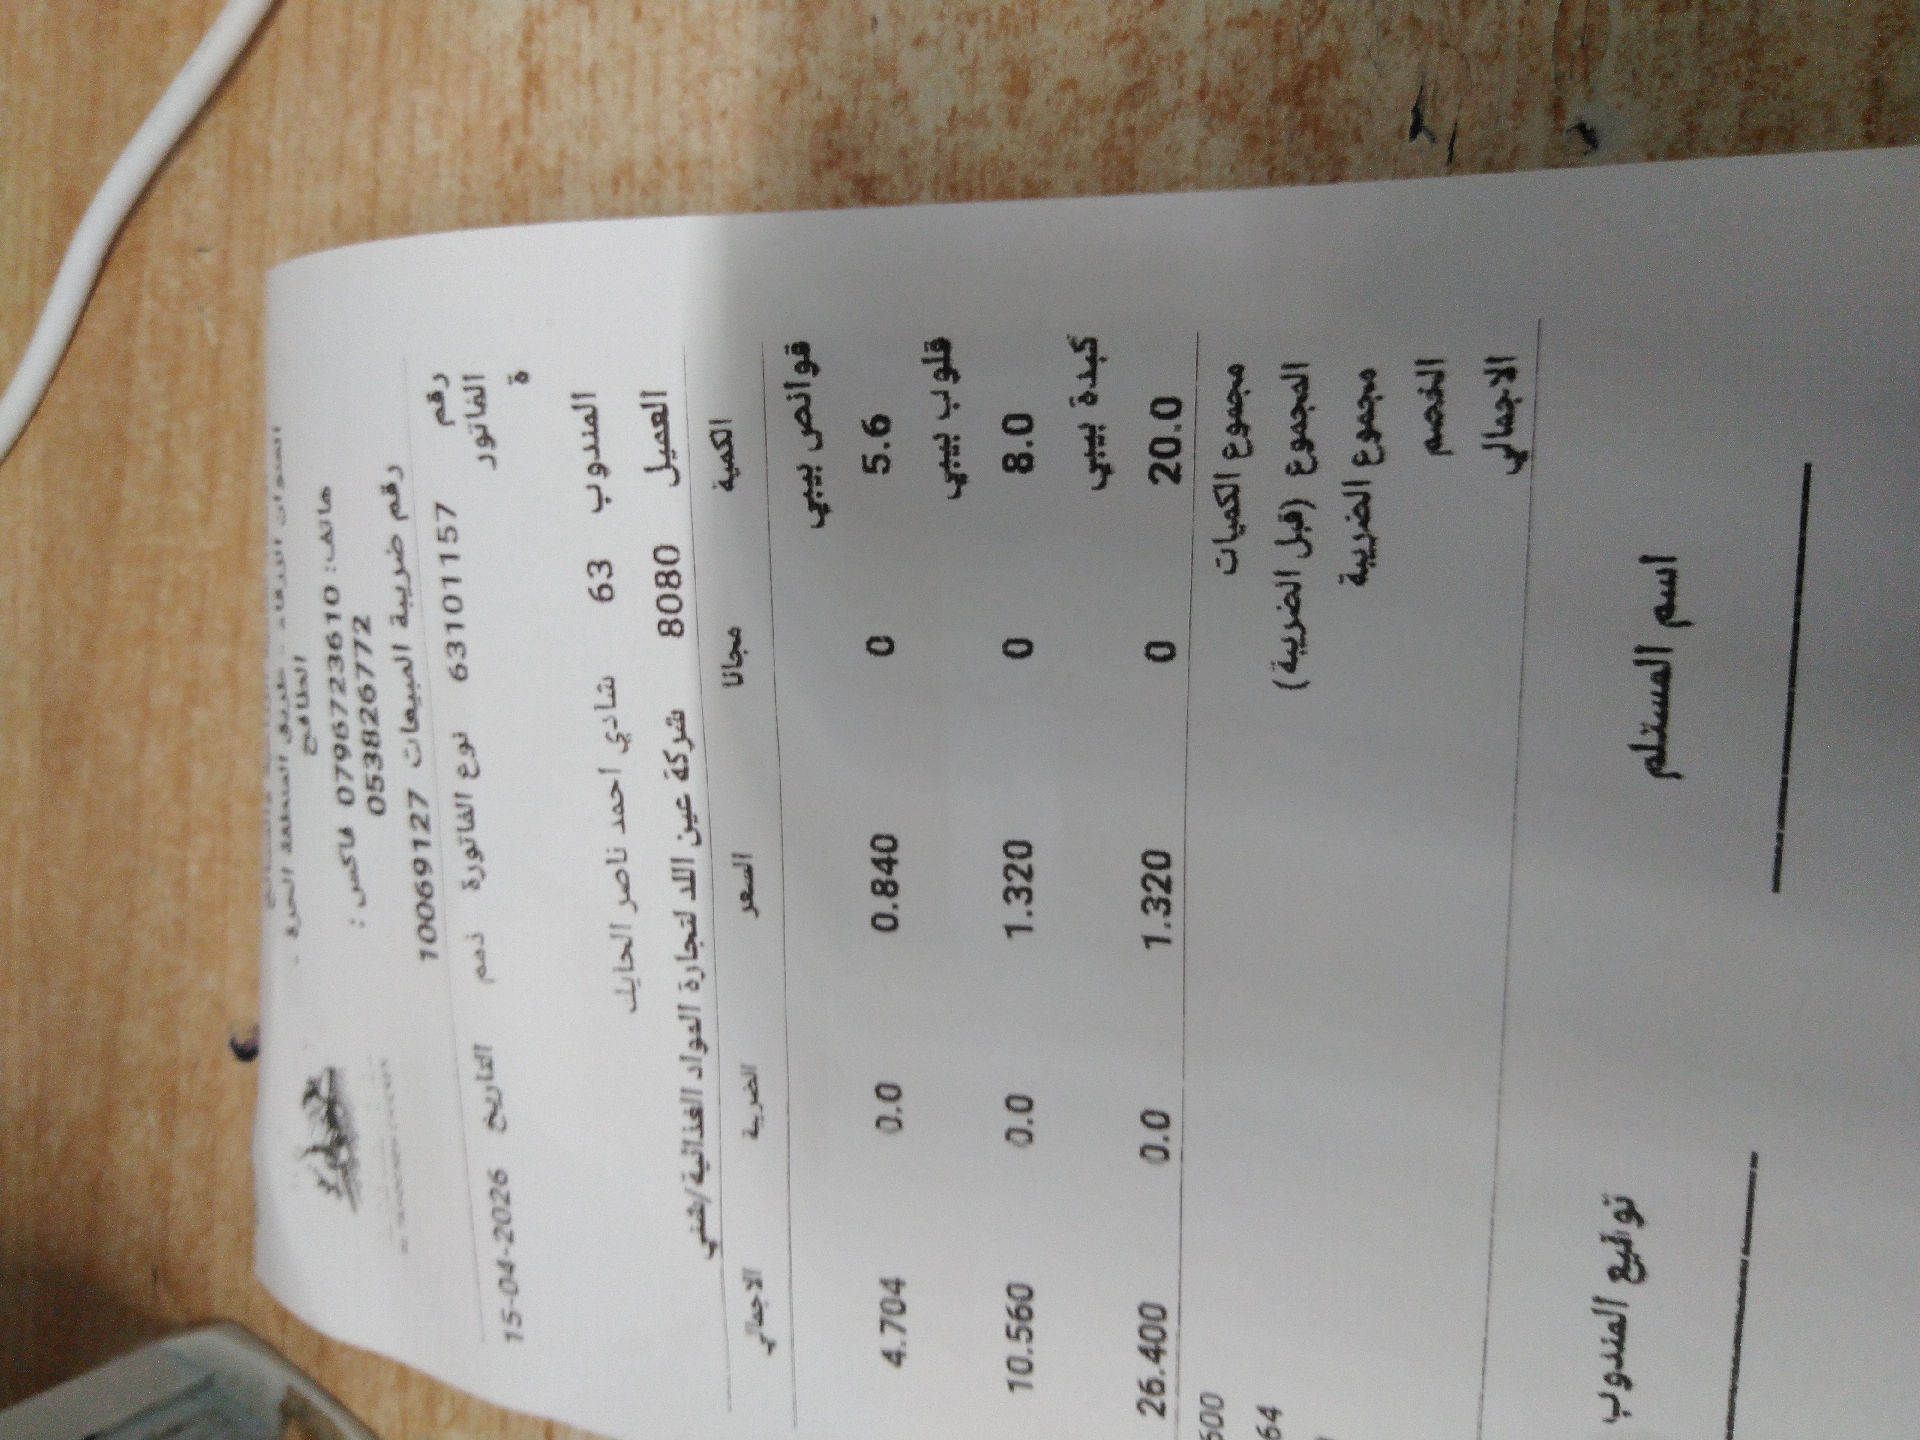 العنوان الزرقاء - طريق المنطقة الحرة -
هاتف: 0796723610 فاكس :
0538826772
رقم ضريبة المبيعات 10069127
رقم الفاتورة 63101157 نوع الفاتورة ذمم التاريخ 15-04-2026
المندوب 63 شادي احمد ناصر الحايك
العميل 8080 شركة عين اللد لتجارة المواد الغذائية/شني
الكمية مجانا السعر الضريبة الاجمالي
قوانص بيبي
5.6 0 0.840 0.0 4.704
قلوب بيبي
8.0 0 1.320 0.0 10.560
كبدة بيبي
20.0 0 1.320 0.0 26.400
مجموع الكميات 600
المجموع (قبل الضريبة) 64
مجموع الضريبة
الخصم
الاجمالي
اسم المستلم توقيع المندوب